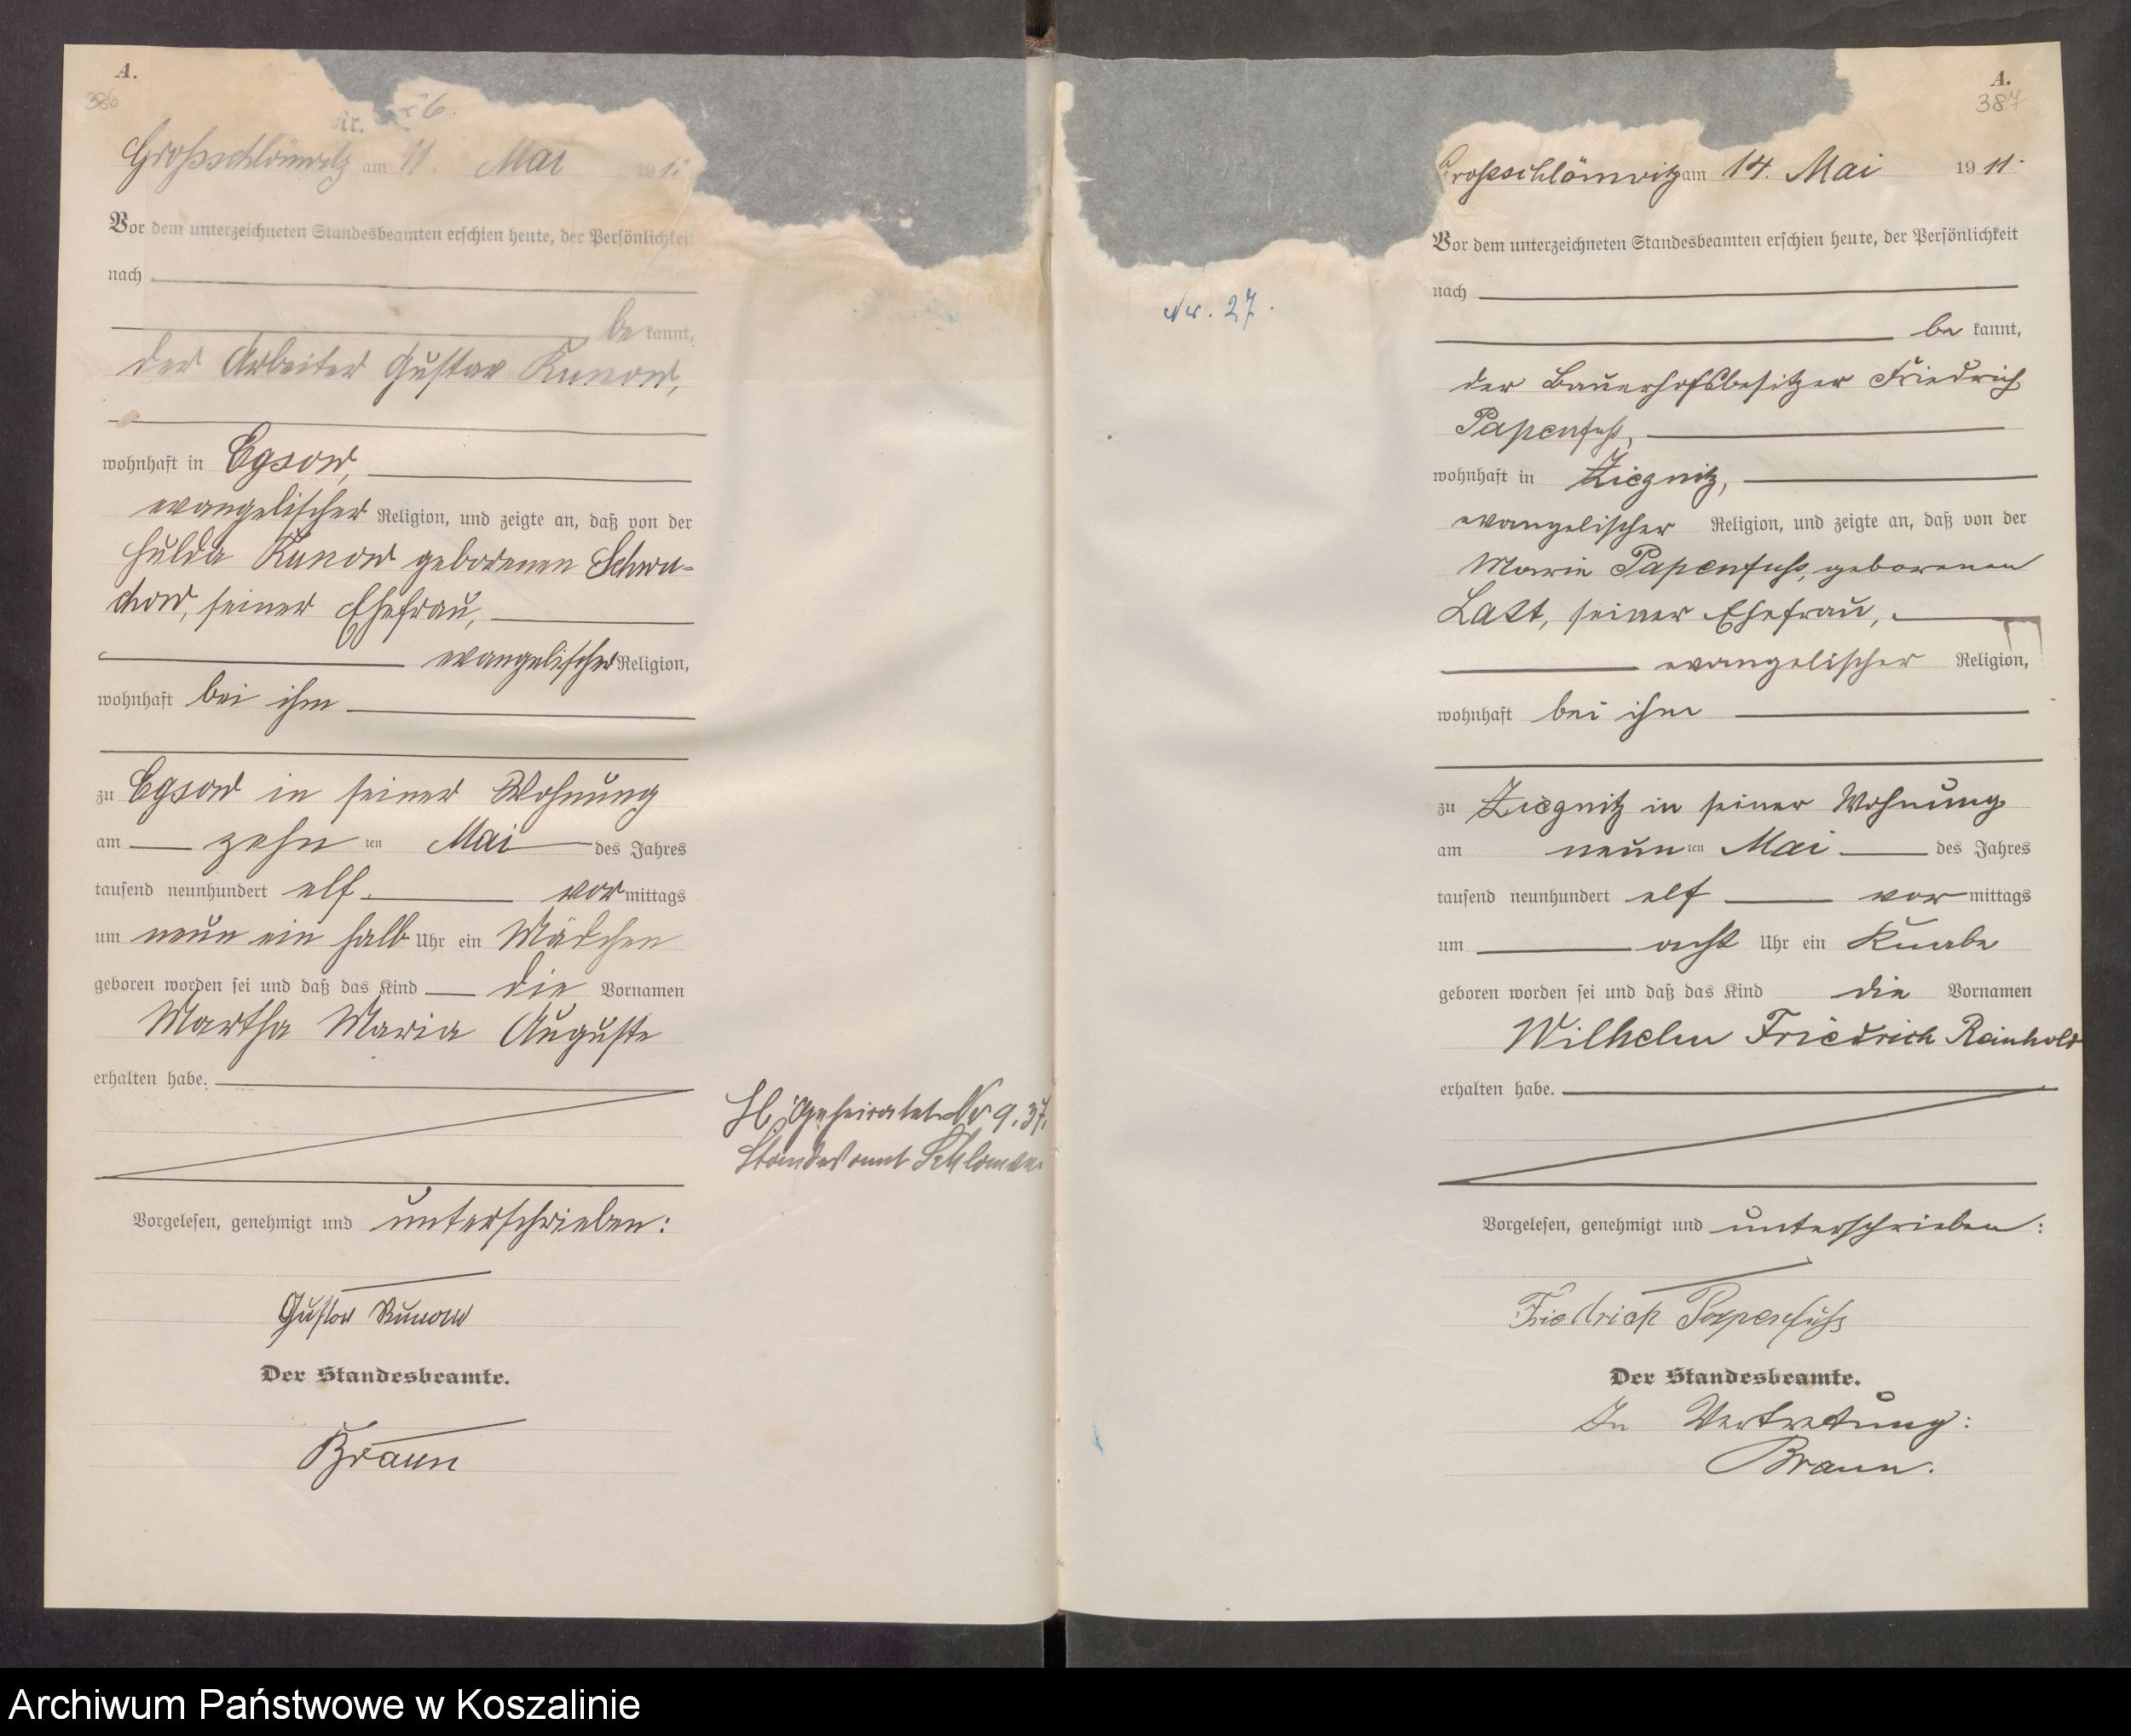 A.
386
Nr. 26.
Grossschlönwitz am 11. Mai 1911
Vor dem unterzeichneten Standesbeamten erschien heute, der Persönlichkeit
nach
be kannt,
der Arbeiter Gustav Kunow,
wohnhaft in Egsow,
evangelischer Religion, und zeigte an, daß von der
Hulda Kunow geborenen Schwa-
chow, seiner Ehefrau,
evangelischer Religion,
wohnhaft bei ihm
zu Egsow in seiner Wohnung
am zehn ten Mai des Jahres
tausend neunhundert elf vor mittags
um neun ein halb Uhr ein Mädchen
geboren worden sei und daß das Kind die Vornamen
Martha Maria Auguste
erhalten habe.
H. Geheiratet Nr 9. 37.
Standesamt
Vorgelesen, genehmigt und unterschrieben:
Gustav Kunow
Der Standesbeamte.
Braun
A.
387
Nr. 27.
Grossschlönwitz am 14. Mai 1911.
Vor dem unterzeichneten Standesbeamten erschien heute, der Persönlichkeit
nach
be kannt,
der Bauerhofsbesitzer Friedrich
Papenfuß,
wohnhaft in Ziegnitz,
evangelischer Religion, und zeigte an, daß von der
Marie Papenfuß, geborenen
seiner Ehefrau,
evangelischer Religion,
wohnhaft bei ihm
zu Ziegnitz in seiner Wohnung
am neun ten Mai des Jahres
tausend neunhundert elf vor mittags
um acht Uhr ein Knabe
geboren worden sei und daß das Kind die Vornamen
Wilhelm Friedrich Reinhold
erhalten habe.
Vorgelesen, genehmigt und unterschrieben:
Friedrich Papenfuß
Der Standesbeamte.
In Vertretung:
Braun.
Archiwum Państwowe w Koszalinie